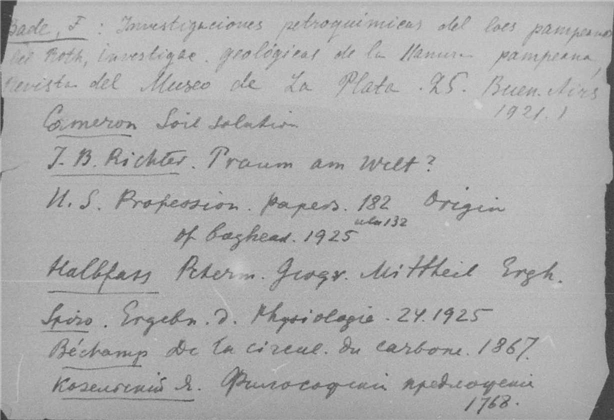 Bade, F : Investigaciones petroquimicas del loes pampeano
Roth, investigac. geológicas de la llanura pampeana,
Revista del Museo de La Plata . 25. Buen. Airs
1921.)
Cameron Soil solution
J. B. Richter. Traum am Welt?
U. S. Profession. papers. 182 Origin
132
of boghead. 1925
Halbfass Peterm. Geogr. Mittheil Ergh.
Spiro. Ergebn. d. Physiologie. 24. 1925
Béchamp De la circul. du carbone. 1867.
Козельский Я. Философские предложения
1768.